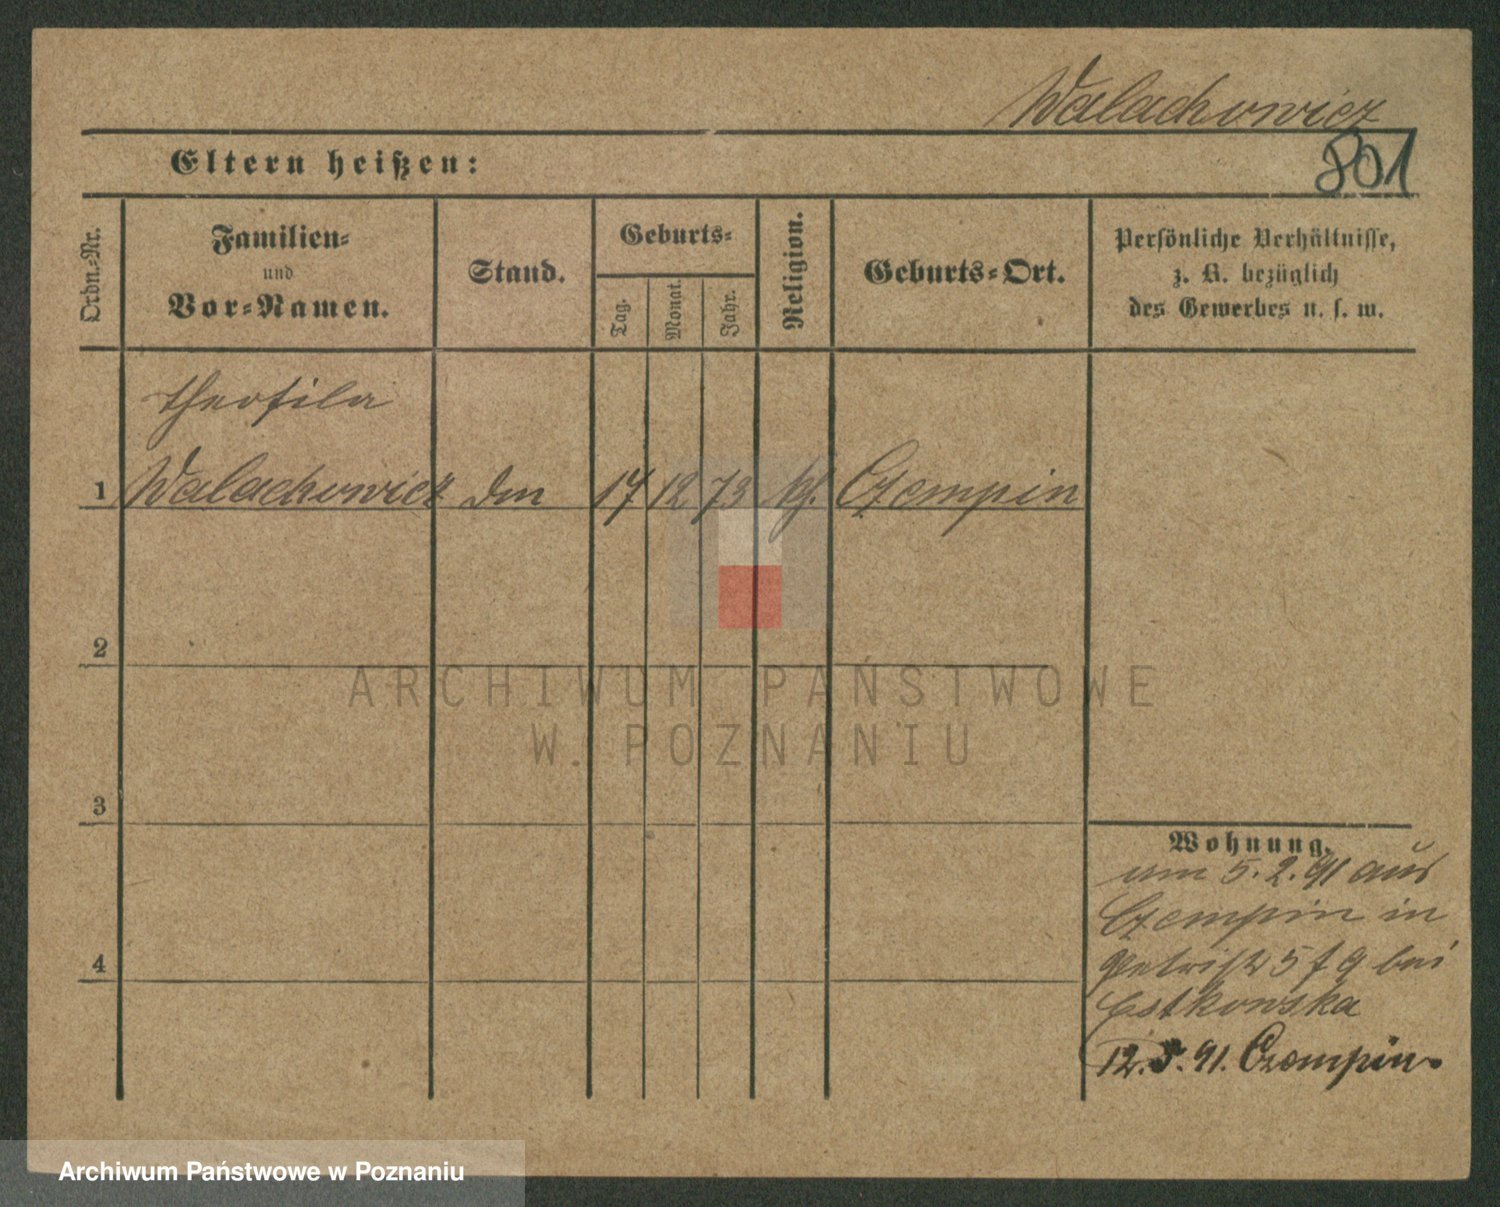 Walachowicz
801
Eltern heißen:
Ordn.-Nr.
Familien-
und
Vor-Namen.
Stand.
Geburts-
Tag.
Monat.
Jahr.
Religion.
Geburts-Ort.
Persönliche Verhältnisse,
z. B. bezüglich
des Gewerbes u. s. w.
Theofila
1 Walachowicz 17 12 73 kf. Czempin
2
3
4
Wohnung.
um 5.2.91 aus
Czempin in
5 bei
Estkowska
12.5.91. Czempin.
ARCHIWUM PAŃSTWOWE
W POZNANIU
Archiwum Państwowe w Poznaniu